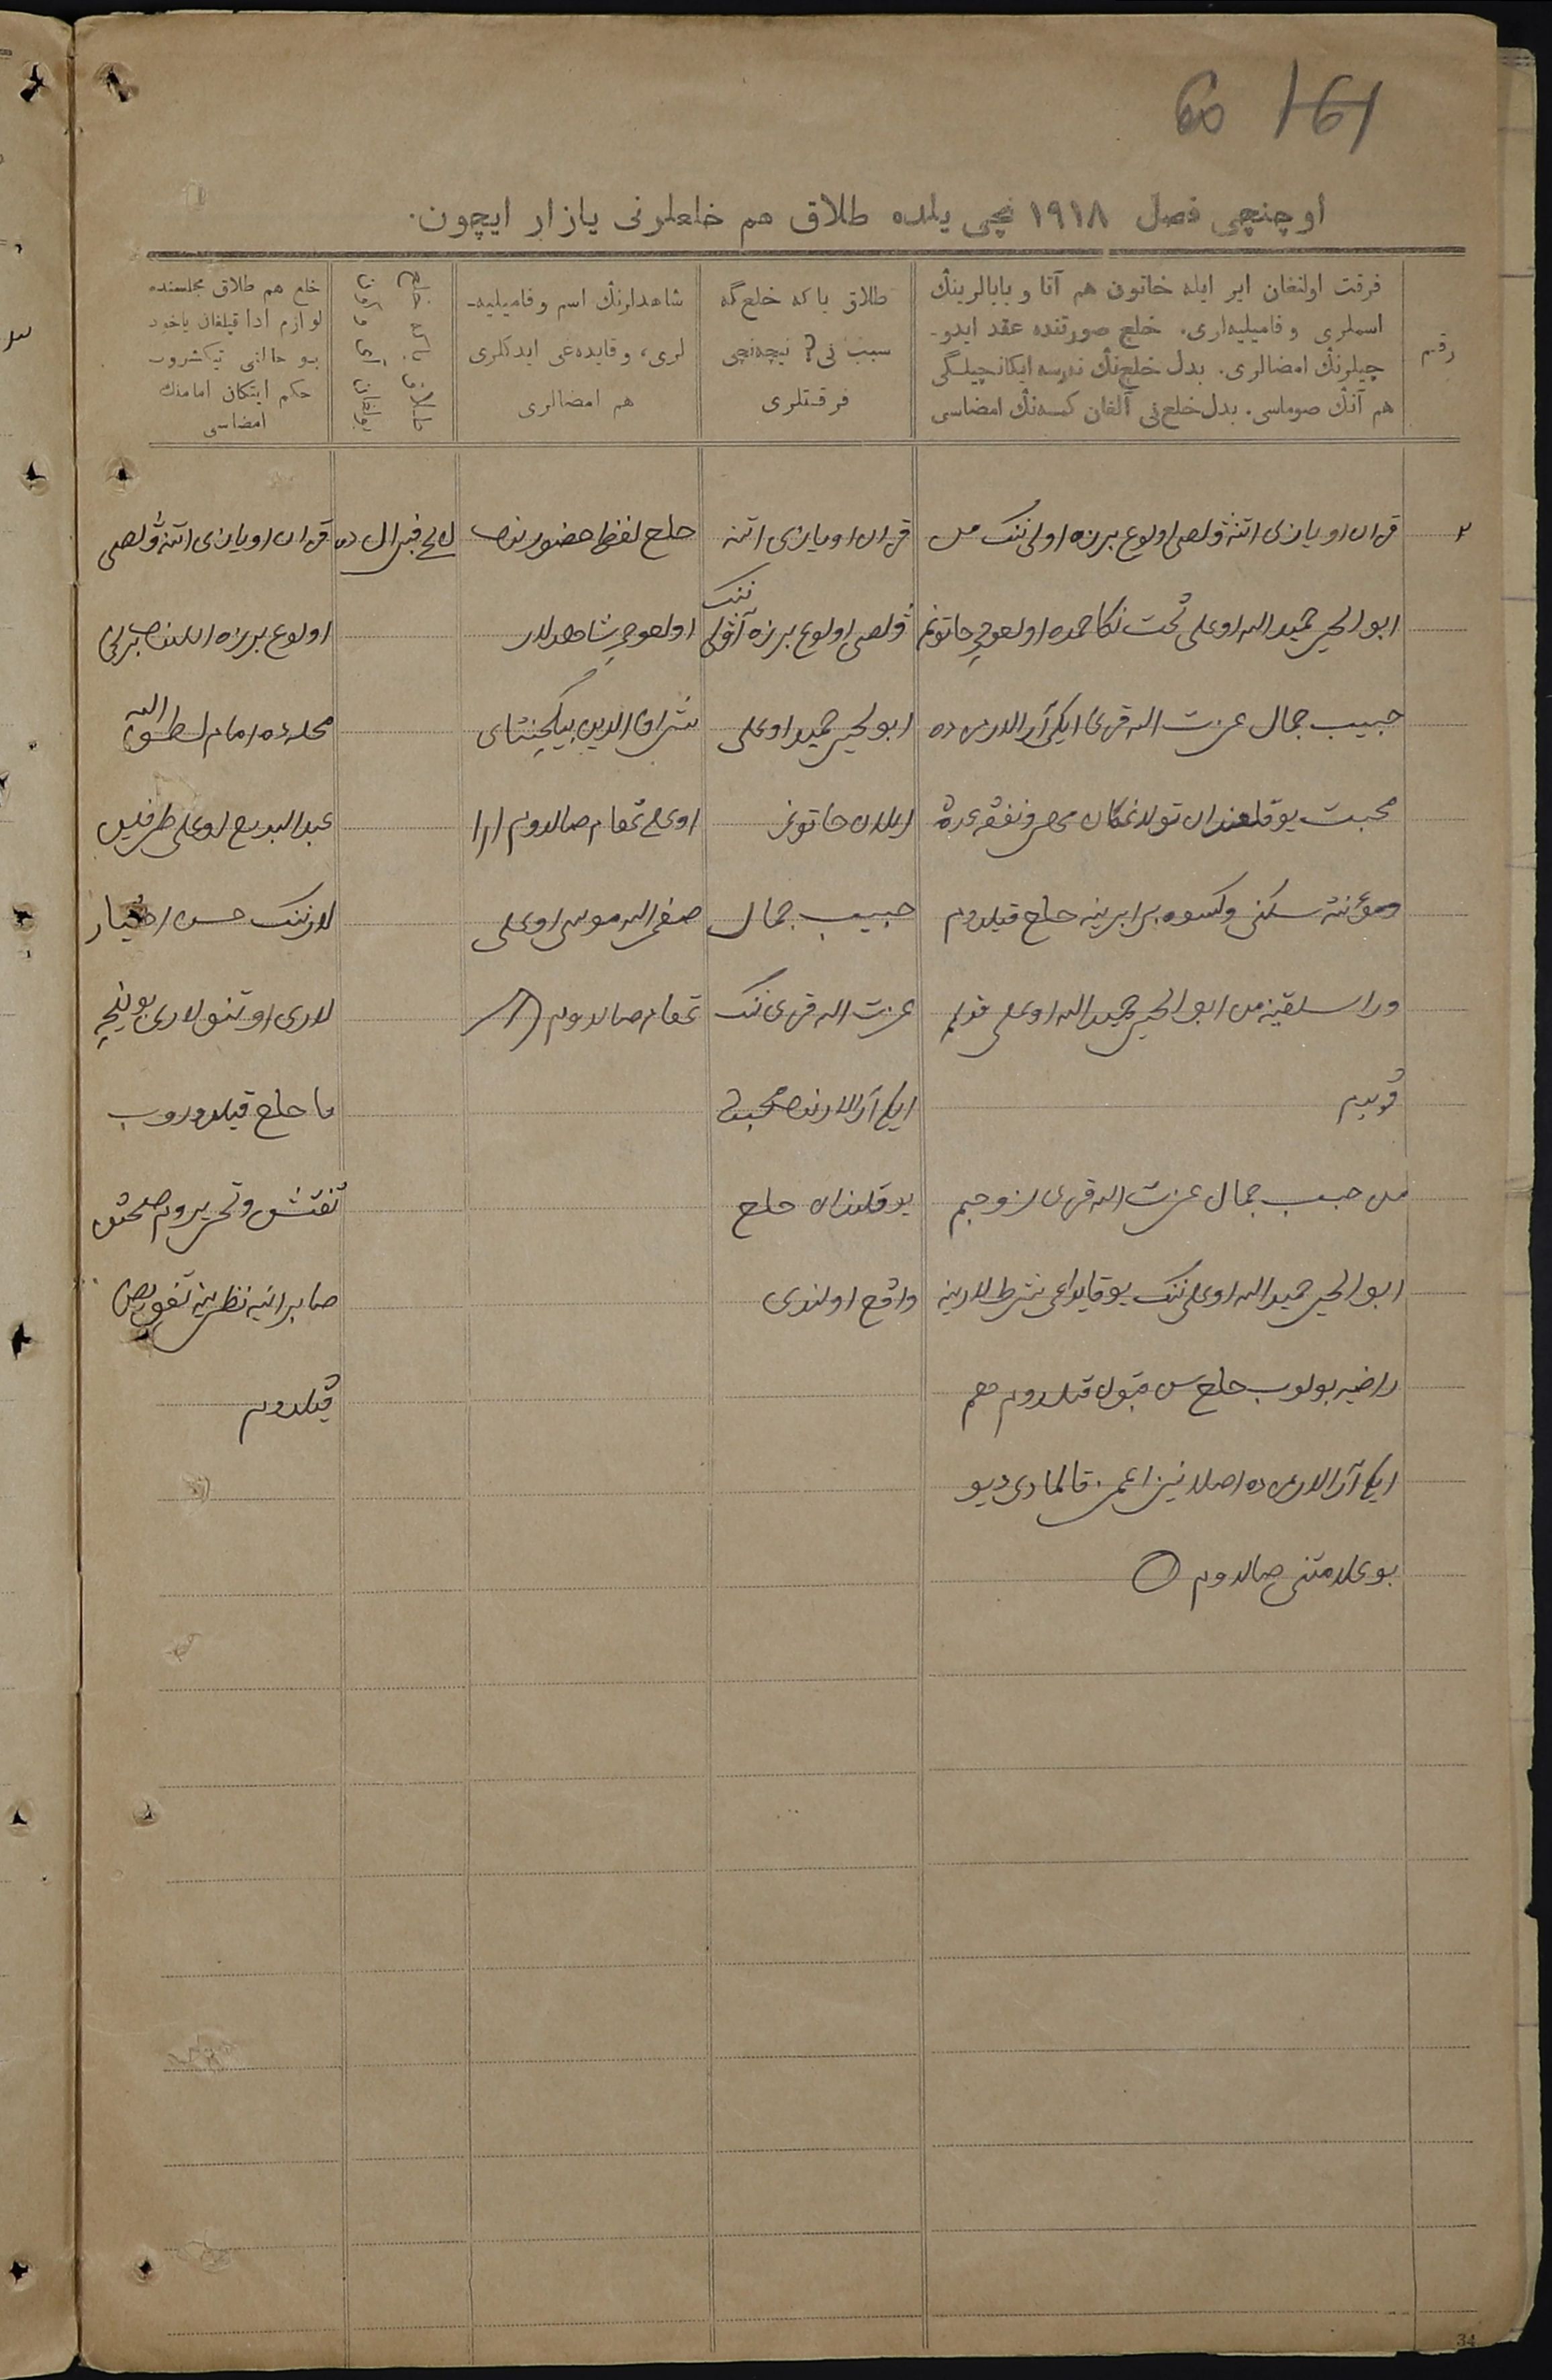 60 161
اوچنچی فصل ۱۹۱۸ نچی یلده طلاق هم خلعلرنی یازار ایچون.
رقم
فرقت اولنغان ایر ایله خاتون هم آتا و بابالرینڭ
اسملری و فامیلیه‌لری. خلع صورتنده عقد ایدو-
چیلرنڭ امضالری. بدل خلع‌نڭ نه‌رسه ایکانچیلگی
هم آنڭ صوماسی. بدل خلع‌نی آلغان کمسه‌نڭ امضاسی
طلاق یاکه خلع‌گه
سبب نی؟ نیچه‌نچی
فرقتلری
شاهدلرنڭ اسم و فامیلیه-
لری، و قایده‌غی ایدکلری
هم امضالری
خلع هم طلاق مجلسنده
لوازم ادا قیلغان یاخود
بو حالنی تیکشروب
حکم ایتکان امامنڭ
امضاسی
۲
قزان اویازی اتنه ولصی اولوغ برزه اولی ننک من
ابوالخیر حمیدالله اوغلی تحت نکاحمده اولغوچی خاتونم
حبیب جمال عزت الله قزی ایکی آرالارمزده
محبت یوقلغندان تولانمکان مهر و نفقه عدة
ومؤنت سکنی وکسوه برابرینه خلع قیلدوم
ابوالخیر حمیدالله اوغلی قولم
قویدم
من حبیب جمال عزت الله قزی زوجم
ابوالخیر حمیدالله اوغلی ننک یوقاریداغی شرطلارینه
راضیه بولوب خلع سن قبول قیلدوم هم
ایکی آرالارمزده اصلا نیزاعمز قالمادی دیو
بو علامتنی صالدوم
قزان اویازی اتنه
ولصی اولوغ برزه آولی ننک
ابوالخیر حمید اوغلی
ایلان خاتونی
حبیب جمال
عزت الله قزی ننک
ایکی آرالارنده محبت
یوقلقدان خلع
واقع اولندی
خلع لفظی حضورنده
اولغوچی شاهدلار
شراف الدین بیکچنتای
اوغلی تمغام صالدوم
صفی الله موسی اوغلی
تمغام صالدوم
فبرال ده
قزان اویازی اتنه ولصی
اولوغ برزه اولنده برنچی
محله‌ده امام لطف الله
عبدالبدیع اوغلی طرفین
لارننک حسن اختیار
لاری اوتنولاری بوینچه
خلع قیلدوروب
تفتش وتحریروم
صابرانیه نظرینه تفویض
قیلدوم
34